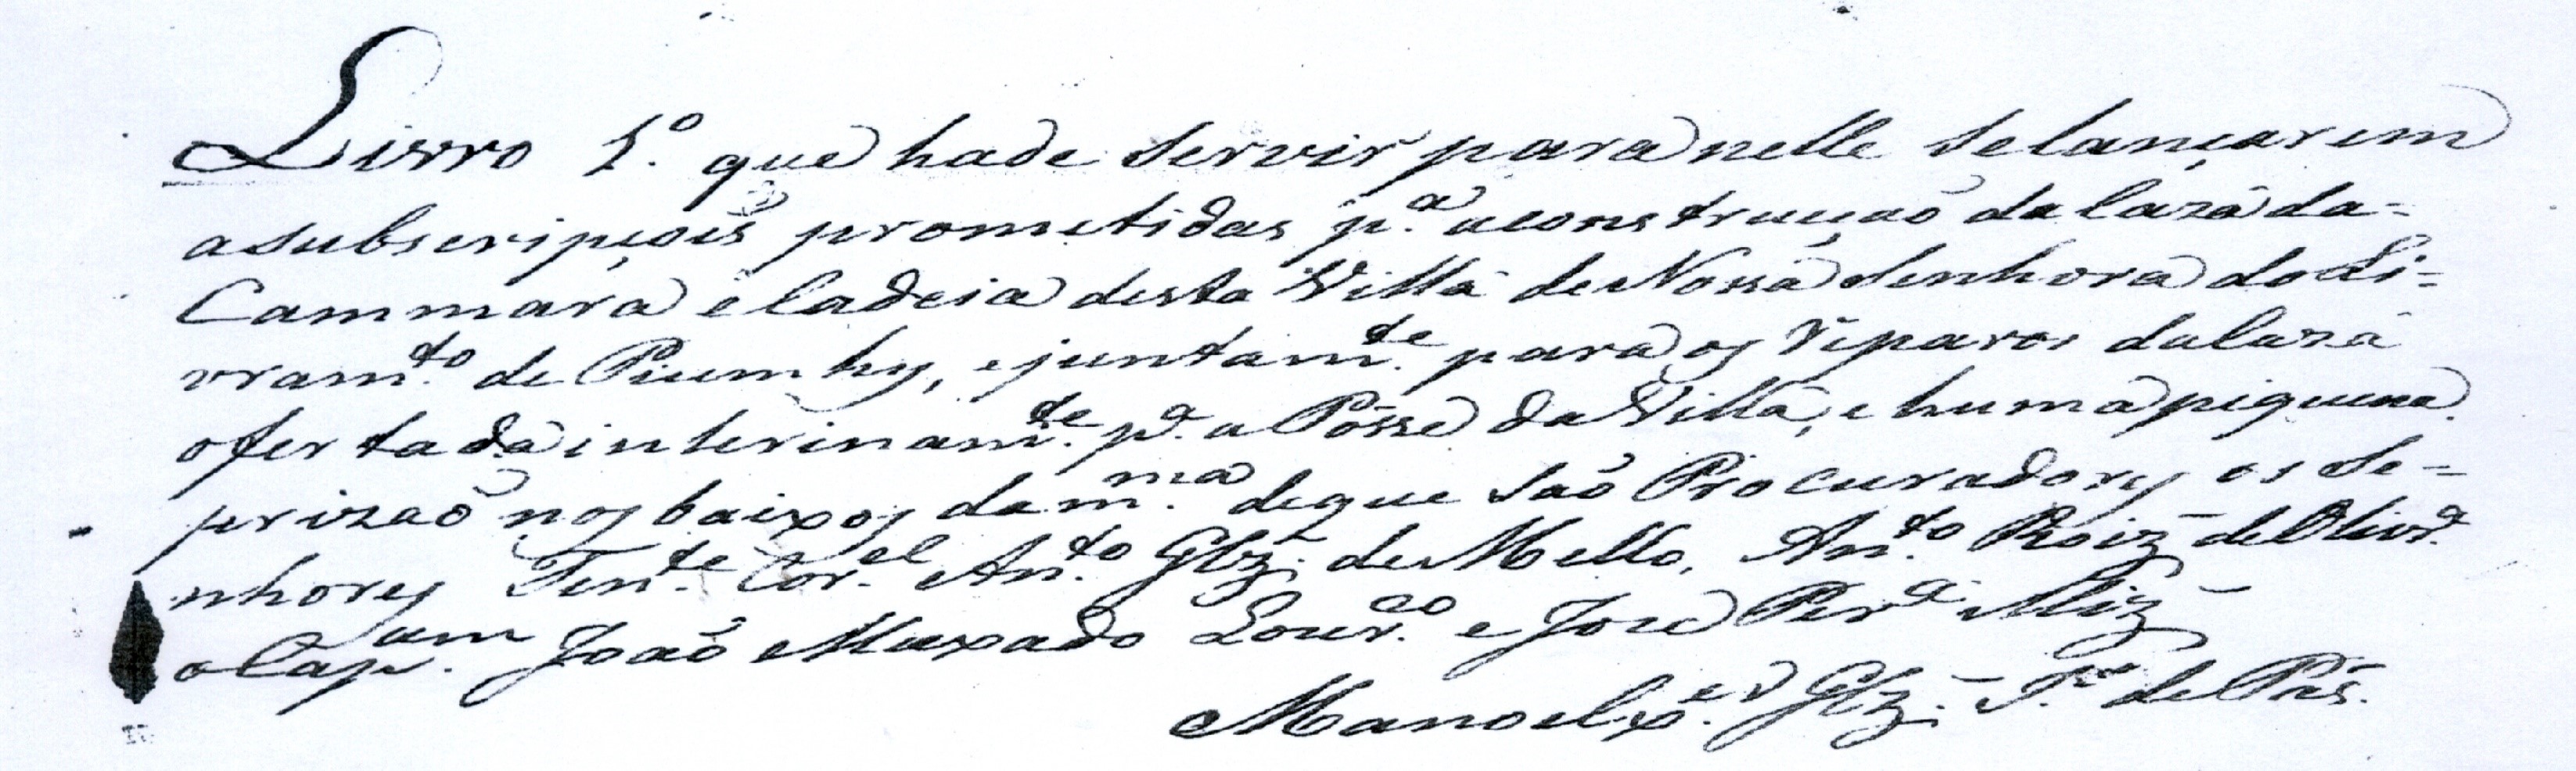 Livro 1.º que hade servir para nelle se lançarem
a subscripçois prometidas p.ª a construcçaõ da Caza da=
Cammara e Cadeia desta Villa de Nossa Senhora do Li=
vram.to de Piumhy, e juntam.te para os reparos da Caza
ofertada interinam.te p.ª a Posse da Villa, e huma piquena
prizaõ nos baixos da m.ma de que saõ Procuradores os Se=
nhores Ten.te Cor.el An.to Glz. de Mello, An.to Roiz de Olivr.ª
o Cap.am Joaõ Maxado Lour.ço e Jose Per.ª Miz
Manoel x.er Glz.